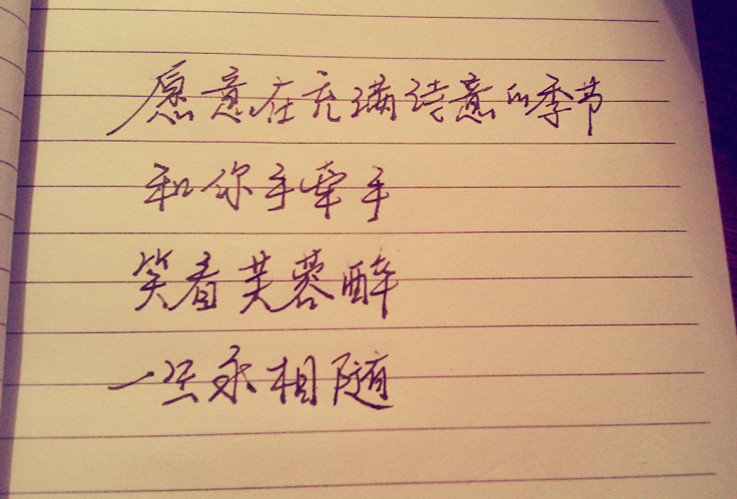 愿意在充满诗意的季节
和你手牵手
笑看芙蓉醉
一生永相随